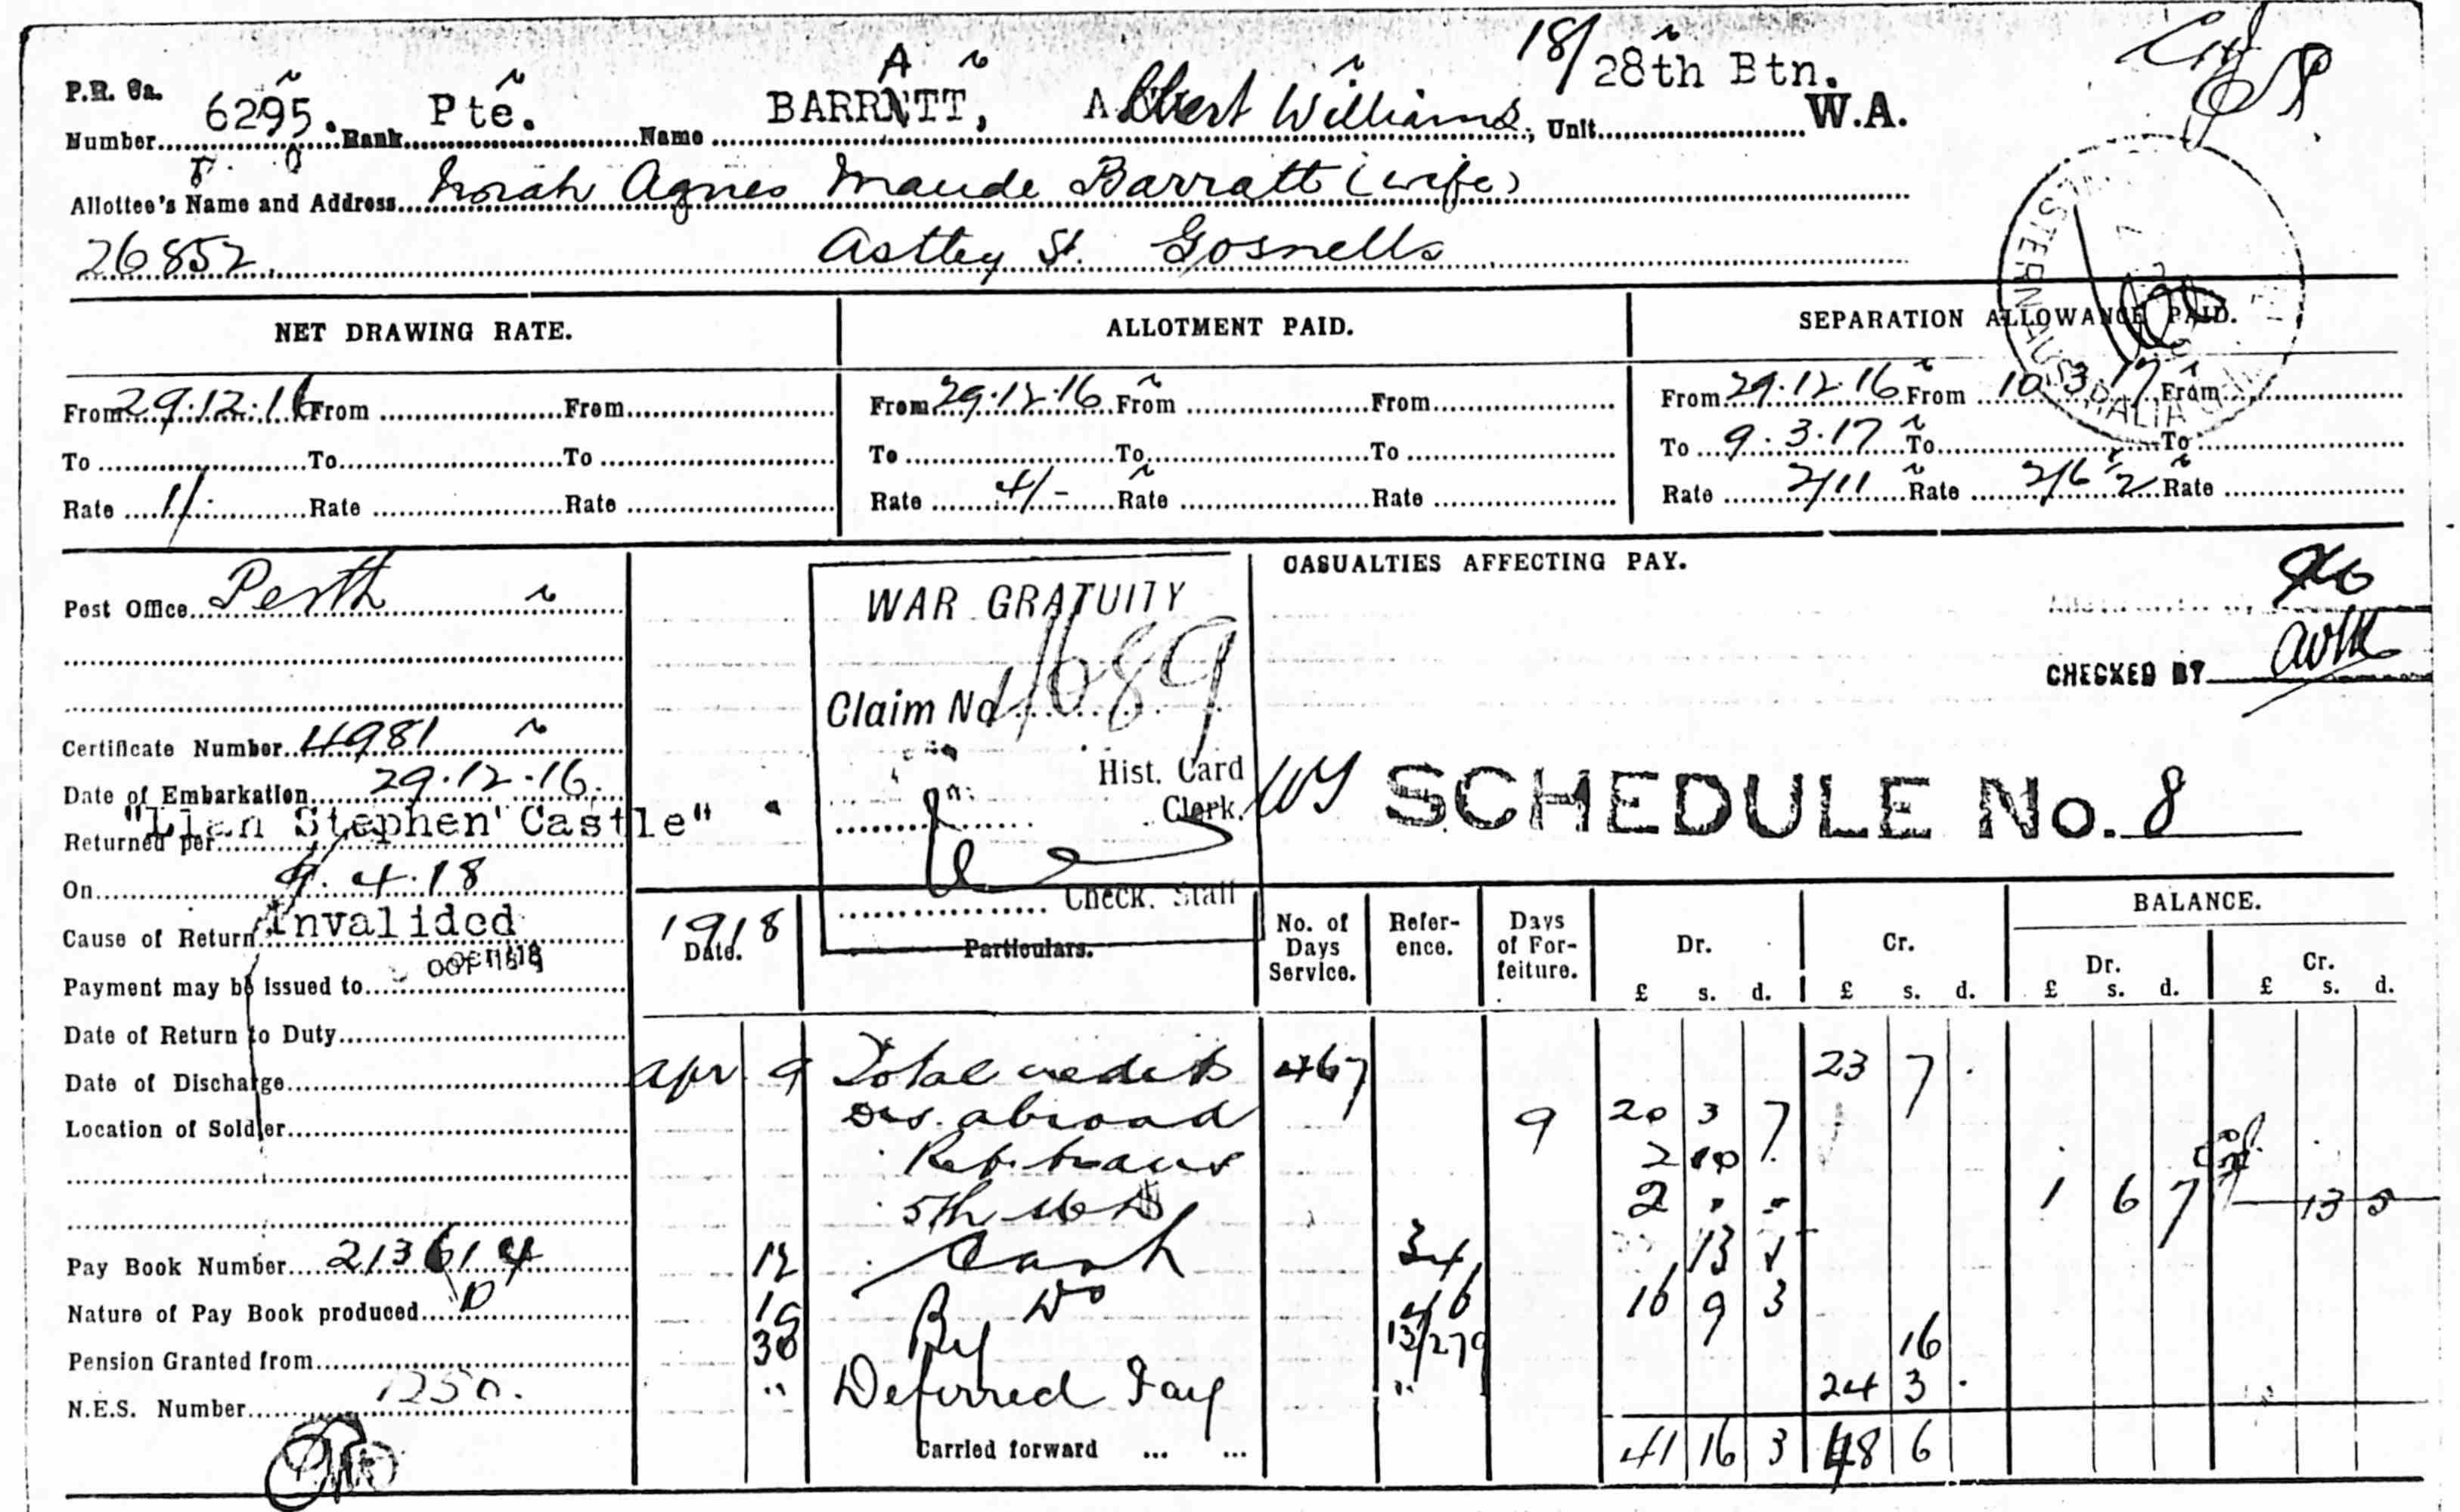 18/
A
P.R. Ga.
Number 6295. Rank Pte. Name BARRATT, Albert Williams, Unit 28th Btn. W.A.
Allottee's Name and Address Norah Agnes Maude Barratt (wife)
26852. Astley St. Gosnells
NET DRAWING RATE. ALLOTMENT PAID. SEPARATION ALLOWANCE PAID.
From 29.12.16 From From From 29.12.16 From From From 29.12.16 From 10.3.17 From
To To To To To To To 9.3.17 To To
Rate 1/- Rate Rate Rate 4/- Rate Rate Rate 2/11 Rate 2/6½ Rate
WESTERN AUSTRALIA
Post Office Perth
WAR GRATUITY
CASUALTIES AFFECTING PAY.
Claim No 1689
CHECKED BY
Certificate Number 4981
Date of Embarkation 29.12.16.
Hist. Card
Clerk.
SCHEDULE No. 8
Returned per "Llan Stephen Castle"
On 9.4.18
Check. Staff
Cause of Return Invalided
1918
Date. Particulars. No. of Days Service. Refer-ence. Days of For-feiture. Dr. Cr. BALANCE.
Dr. Cr.
£ s. d. £ s. d. £ s. d. £ s. d.
Payment may be issued to
Date of Return to Duty
Date of Discharge
Location of Soldier
Apr 9 Total credits 467 23 7 .
Dis. abroad 9 20 3 7
2 10 .
5th MD 2 . - 1 6 7 13 5
Pay Book Number 213614
12 Cash 34 13 5
Nature of Pay Book produced D
19 Do 46 16 9 3
Pension Granted from
30 By 13/279 16
N.E.S. Number 1250.
" Deferred Pay " 24 3 .
Carried forward ... ... 41 16 3 48 6